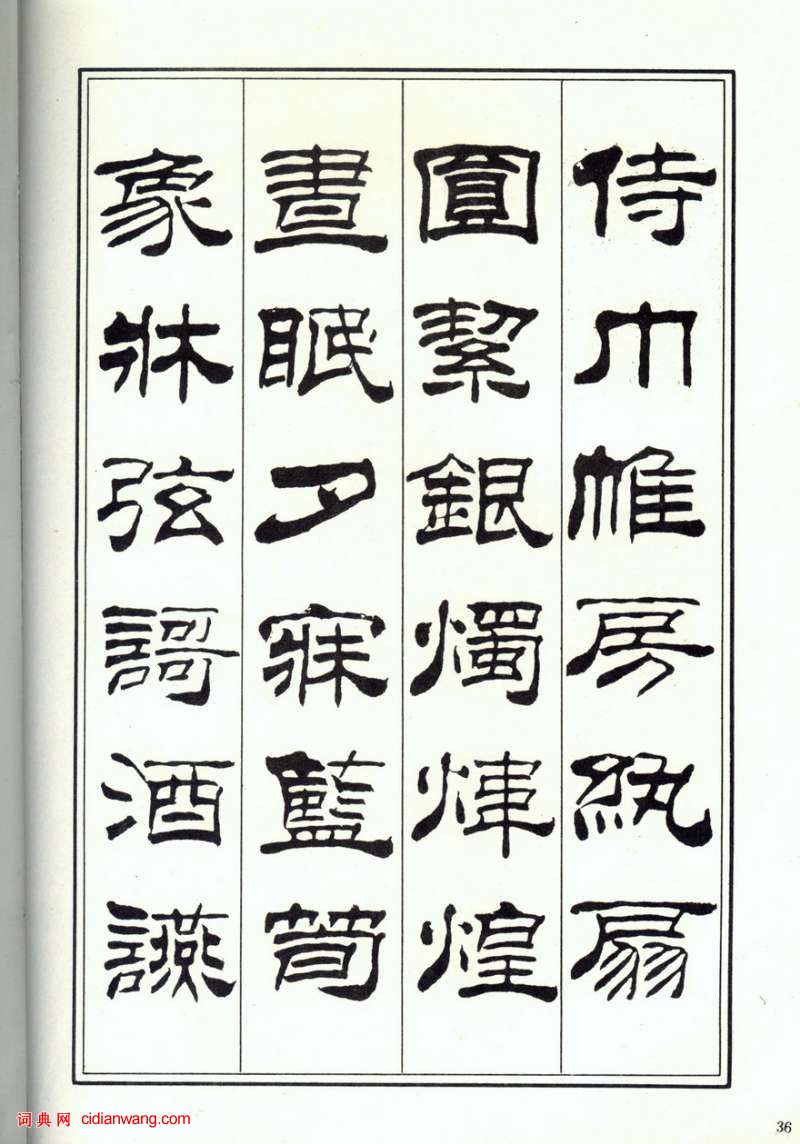 侍巾帷房紈扇
圓絜銀燭煒煌
晝眠夕寐藍筍
象牀弦謌酒讌
词典网 cidianwang.com
36